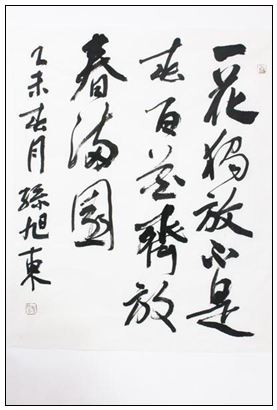 一花獨放不是
春百花齊放
春滿園
乙未春月孫旭東